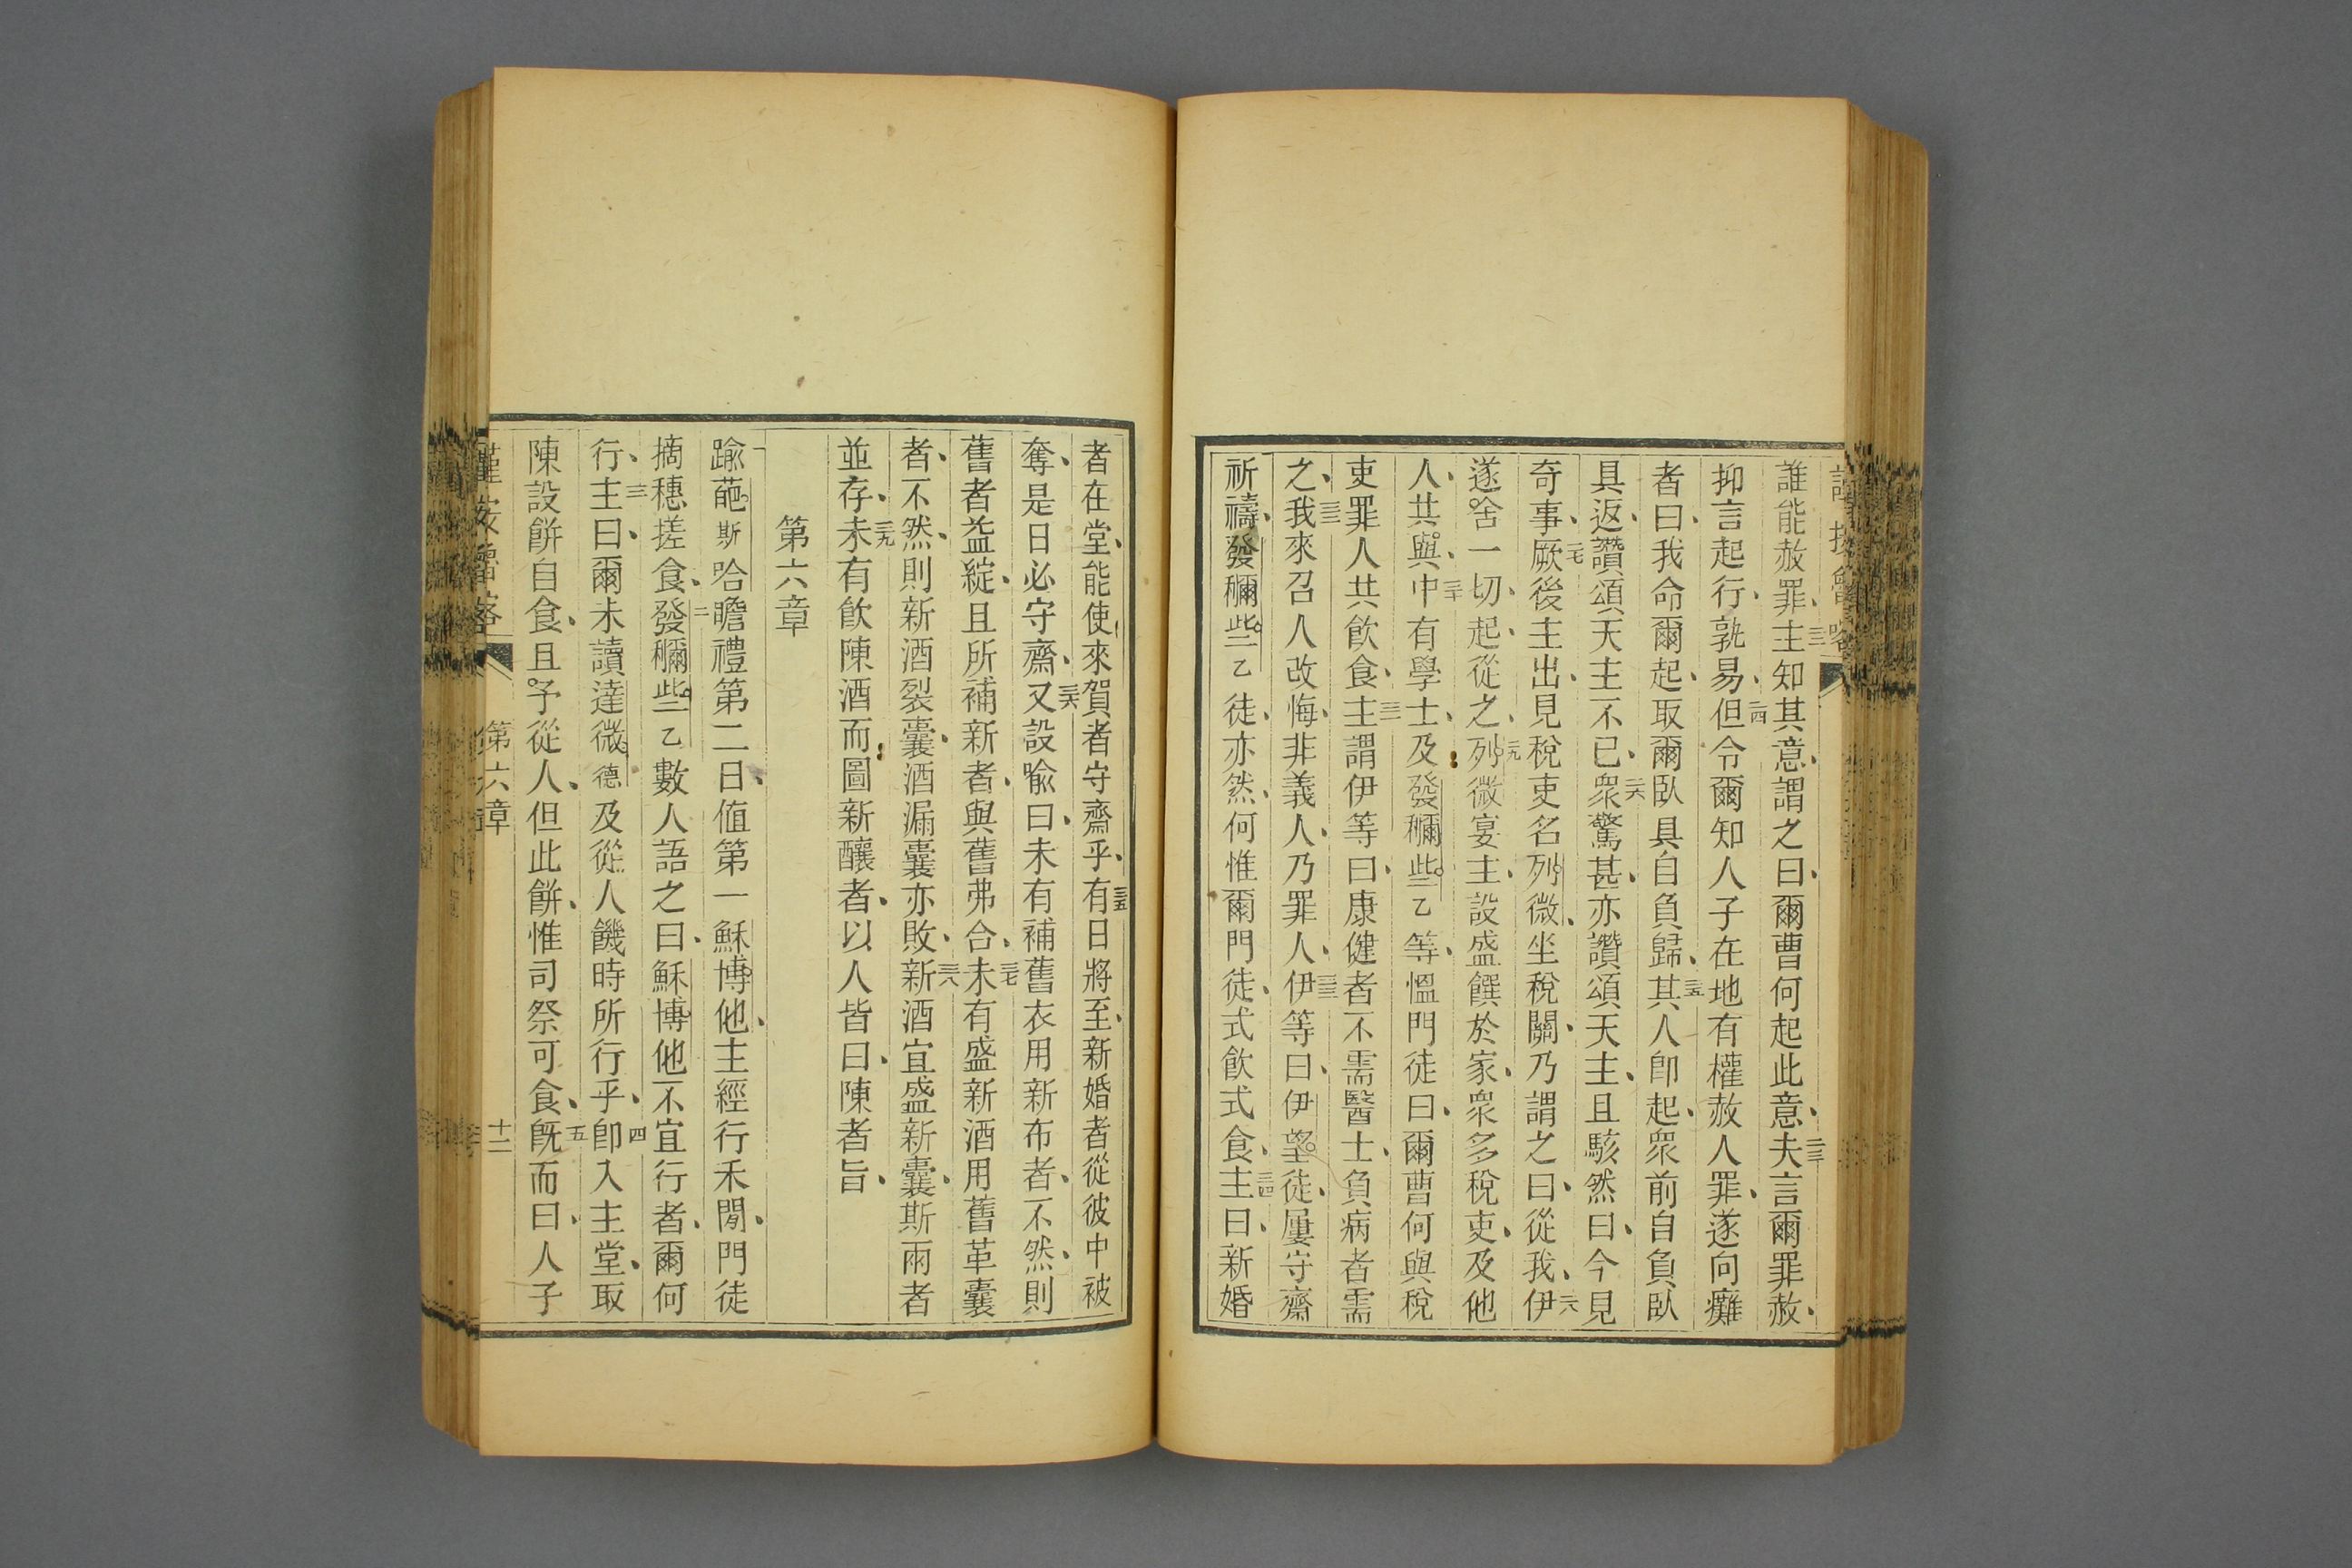 誰能赦罪、三主知其意、謂之曰、爾曹何起此意、三夫言爾罪赦、
抑言起行、孰易、四但令爾知人子在地有權赦人罪、遂向癱
者曰、我命爾起、取爾臥具自負歸、五其人卽起、衆前自負臥
具返、讚頌天主不已、六衆驚甚、亦讚頌天主、且駭然曰、今見
奇事、七厥後主出、見稅吏名列微、坐稅關、乃謂之曰、從我、六伊
遂舍一切、起、從之、九列微宴主、設盛饌於家、衆多稅吏、及他
人、共與、三十中有學士、及發穪些乙等、慍門徒曰、爾曹何與稅
吏罪人共飲食、三主謂伊等曰、康健者不需醫士、負病者需
之、三我來召人改悔、非義人、乃罪人、三伊等曰、伊望徒、屢守齋
祈禱、發穪些乙徒、亦然、何惟爾門徒、式飲式食、主曰、新婚
者在堂、能使來賀者守齋乎、三五有日將至、新婚者從彼中被
奪、是日必守齋、三六又設喩曰、未有補舊衣用新布者、不然、則
舊者益綻、且所補新者、與舊弗合、三七未有盛新酒用舊革囊
者、不然、則新酒裂囊、酒漏囊亦敗、三八新酒宜盛新囊、斯兩者
並存、三九未有飲陳酒而圖新釀者、以人皆曰、陳者旨、
第六章
一踰葩斯哈瞻禮第二日、値第一穌博他、主經行禾閒、門徒
摘穗搓食、二發穪些乙數人語之曰、穌博他不宜行者、爾何
行、三主曰、爾未讀達微德及從人饑時所行乎、四卽入主堂、取
陳設餅自食、且予從人、但此餅、惟司祭可食、五旣而曰、人子
第六章
十二